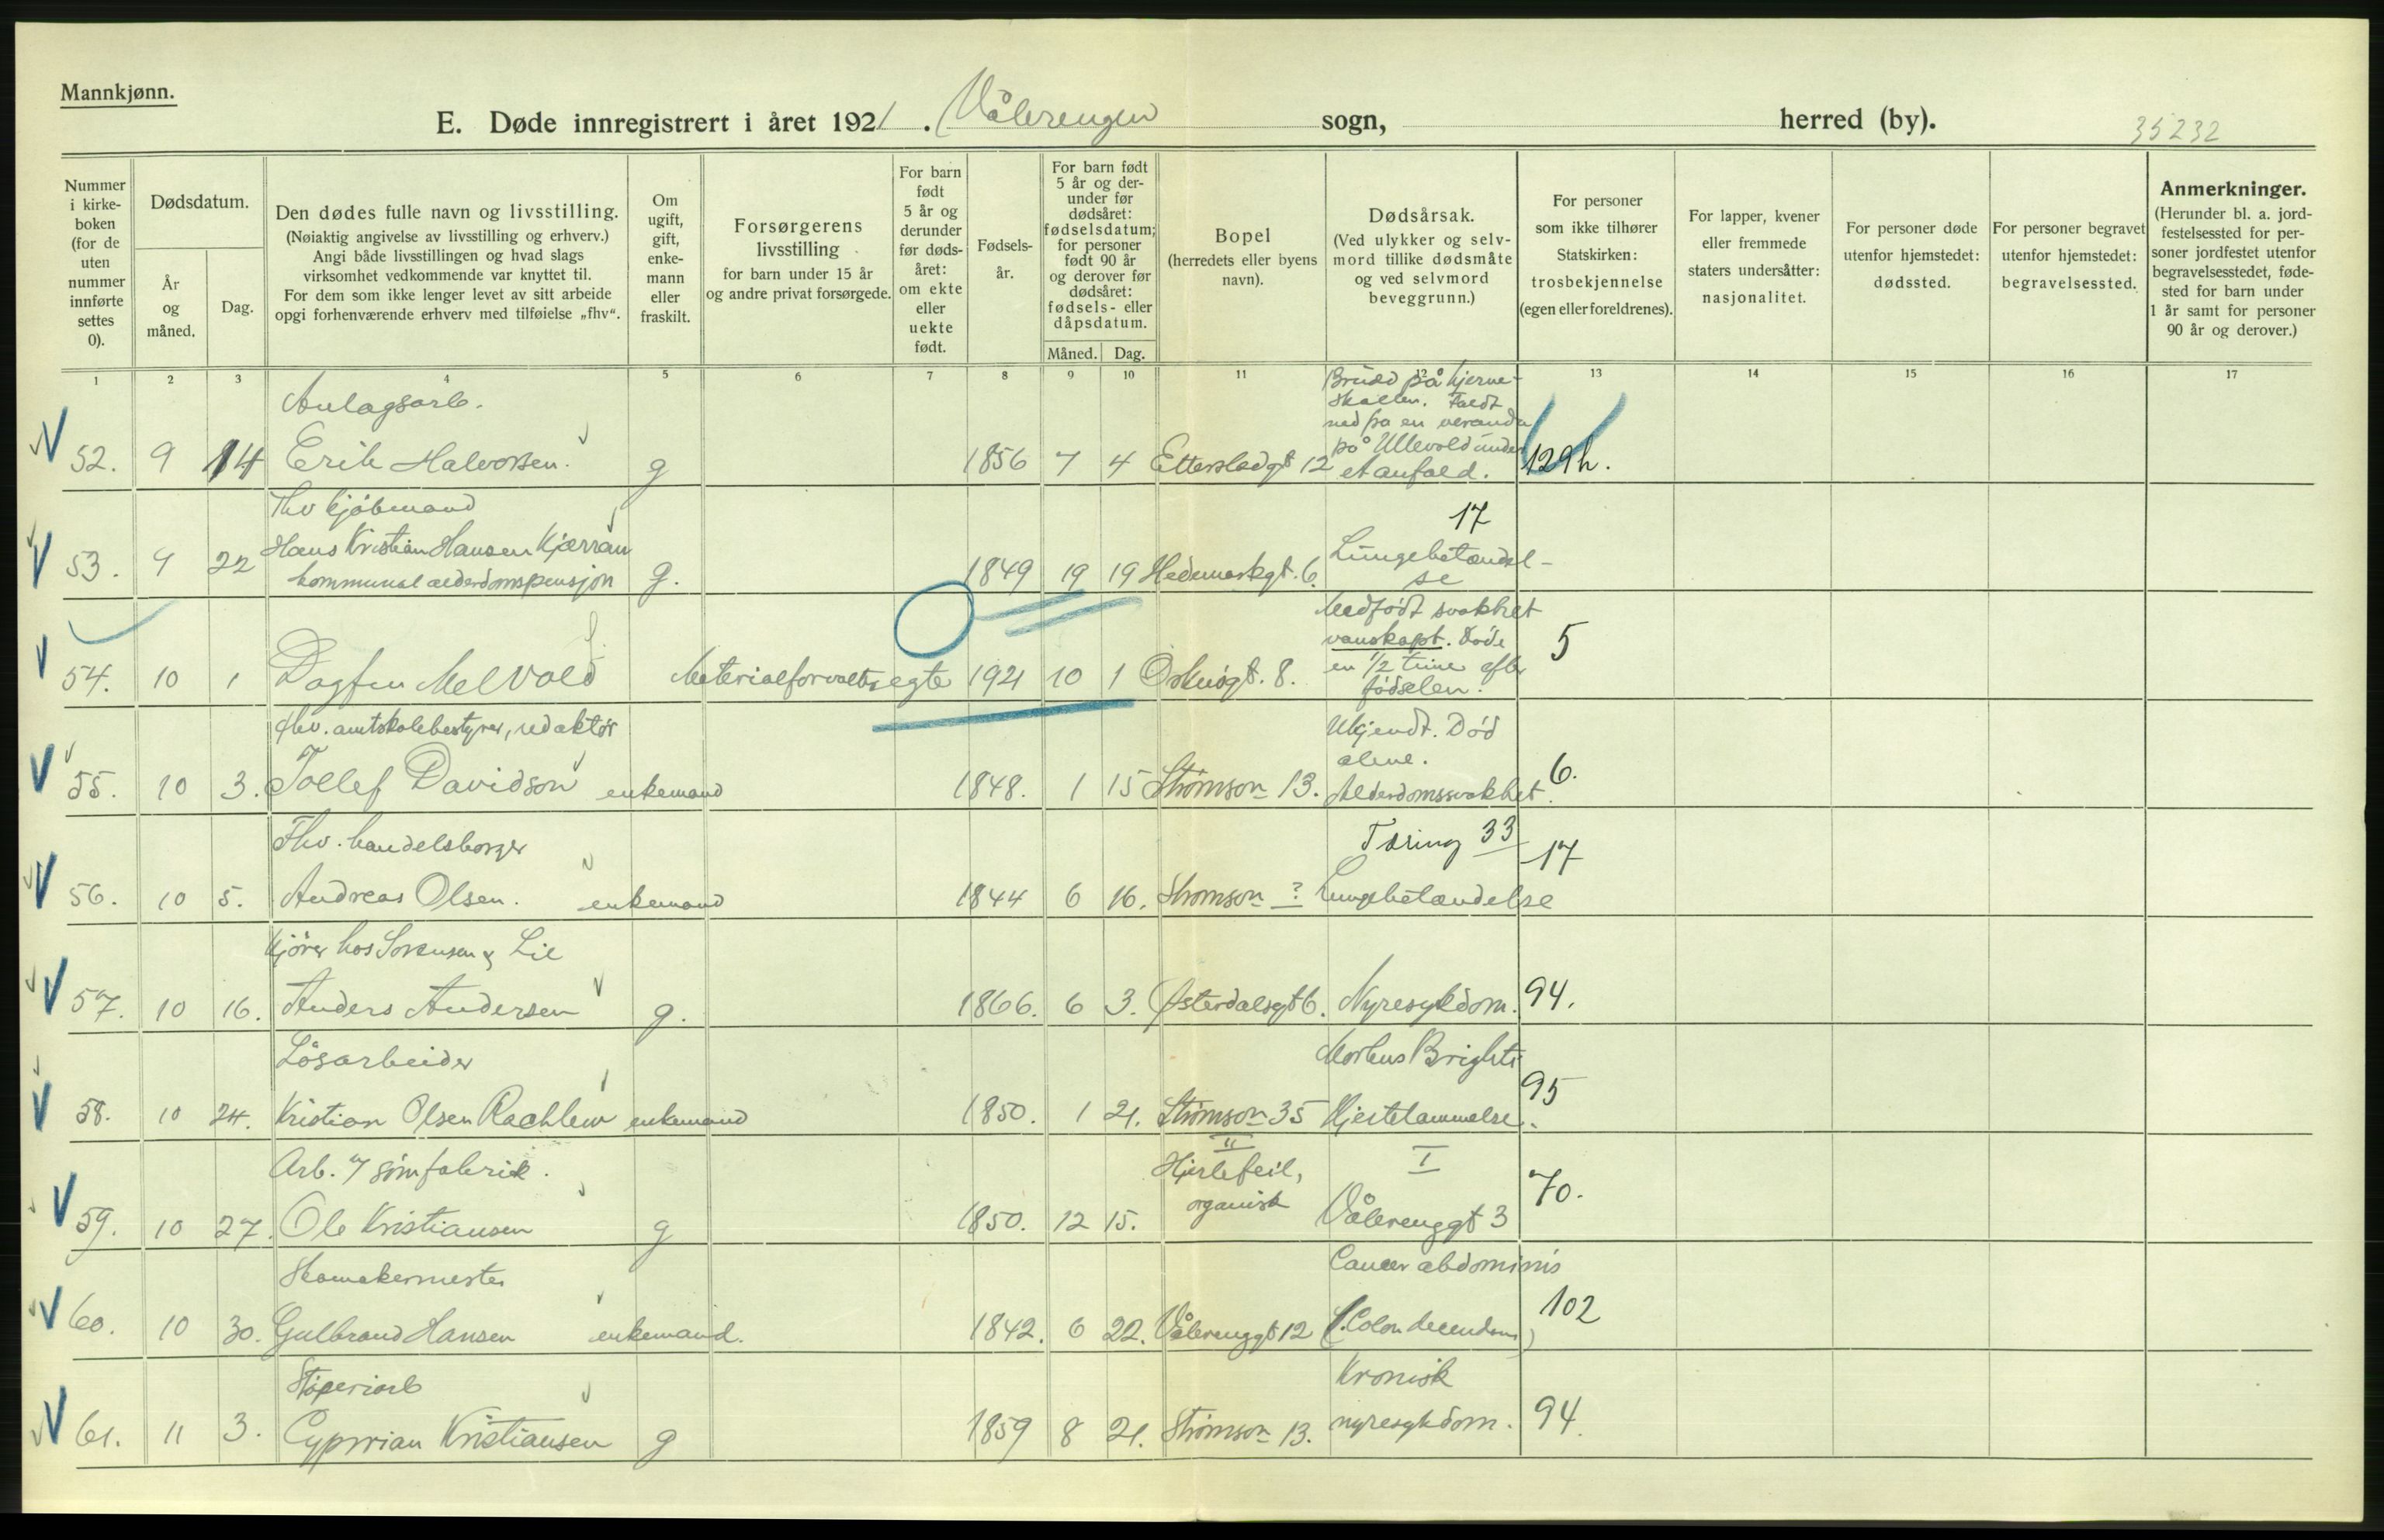 Mannkjønn.
E. Døde innregistrert i året 1921. Vålerengen sogn, herred (by). 35232
Nummer i kirke-boken (for de uten nummer innførte settes 0).
Dødsdatum.
År og måned.
Dag.
Den dødes fulle navn og livsstilling.
(Nøiaktig angivelse av livsstilling og erhverv.)
Angi både livsstillingen og hvad slags
virksomhet vedkommende var knyttet til.
For dem som ikke lenger levet av sitt arbeide
opgi forhenværende erhverv med tilføielse „fhv“.
Om ugift, gift, enke-mann eller fraskilt.
Forsørgerens livsstilling
for barn under 15 år
og andre privat forsørgede.
For barn født 5 år og derunder før døds-året: om ekte eller uekte født.
Fødsels-år.
For barn født 5 år og der-under før dødsåret: fødselsdatum; for personer født 90 år og derover før dødsåret: fødsels- eller dåpsdatum.
Måned. Dag.
Bopel
(herredets eller byens navn).
Dødsårsak.
(Ved ulykker og selv-mord tillike dødsmåte og ved selvmord beveggrunn.)
For personer som ikke tilhører Statskirken: trosbekjennelse (egen eller foreldrenes).
For lapper, kvener eller fremmede staters undersåtter: nasjonalitet.
For personer døde utenfor hjemstedet: dødssted.
For personer begravet utenfor hjemstedet: begravelsessted.
Anmerkninger.
(Herunder bl. a. jord-festelsessted for per-soner jordfestet utenfor begravelsesstedet, føde-sted for barn under 1 år samt for personer 90 år og derover.)
1 2 3 4 5 6 7 8 9 10 11 12 13 14 15 16 17
Anlagsarb.
Brudd på hjerne-
skallen. Faldt
ned fra en veranda
på Ullevold under
52. 9 14 Erik Halvorsen. g 1856 7 4 Etterstadgt 12 et anfald. 129h.
Fhv kjøbmand
17
Hans Kristian Hansen Kjærran
Lungebetændel-
53. 9 22 kommunal alderdomspensjon g. 1849 19 19 Hedemarkgt. 6. se
Medfødt svakhet
vanskapt. Døde 5
54. 10 1 Dagfin Melvold Materialforvalter egte 1921 10 1 Oskøgt. 8. en 1/2 time efter
fødselen.
fhv. amtskolebestyrer, redaktør
Ukjendt. Død
alene.
55. 10 3. Tollef Davidson enkemand 1848. 1 15 Strømson 13. Alderdomssvakhet. 6.
Fhv. handelsborger
Tæring 33
17
56. 10 5. Andreas Olsen. enkemand 1844 6 16. Strømson ? Lungebetændelse
Kjører hos Sørensen & Lie
57. 10 16. Anders Andersen g. 1866. 6 3. Østerdalsgt 6. Nyresykdom. 94.
Løsarbeider
Morbus Brighti
95
58. 10 24. Kristian Olsen Rachlew enkemand 1850. 1 21. Strømson 35 Hjertelammelse.
Arb. v/ sømfabrik.
II
I
Hjertefeil,
organisk
70.
59. 10 27. Ole Kristiansen g 1850. 12 15. Vålerenggt 3
Skomakermester
Cancer abdominis
102
60. 10 30. Gulbrand Hansen enkemand. 1842. 6 22. Vålerenggt 12 (Colon decendens)
Støperiarb
Kronisk
61. 11 3. Cyprian Kristiansen g 1859 8 21. Strømson 13. nyresykdom. 94.